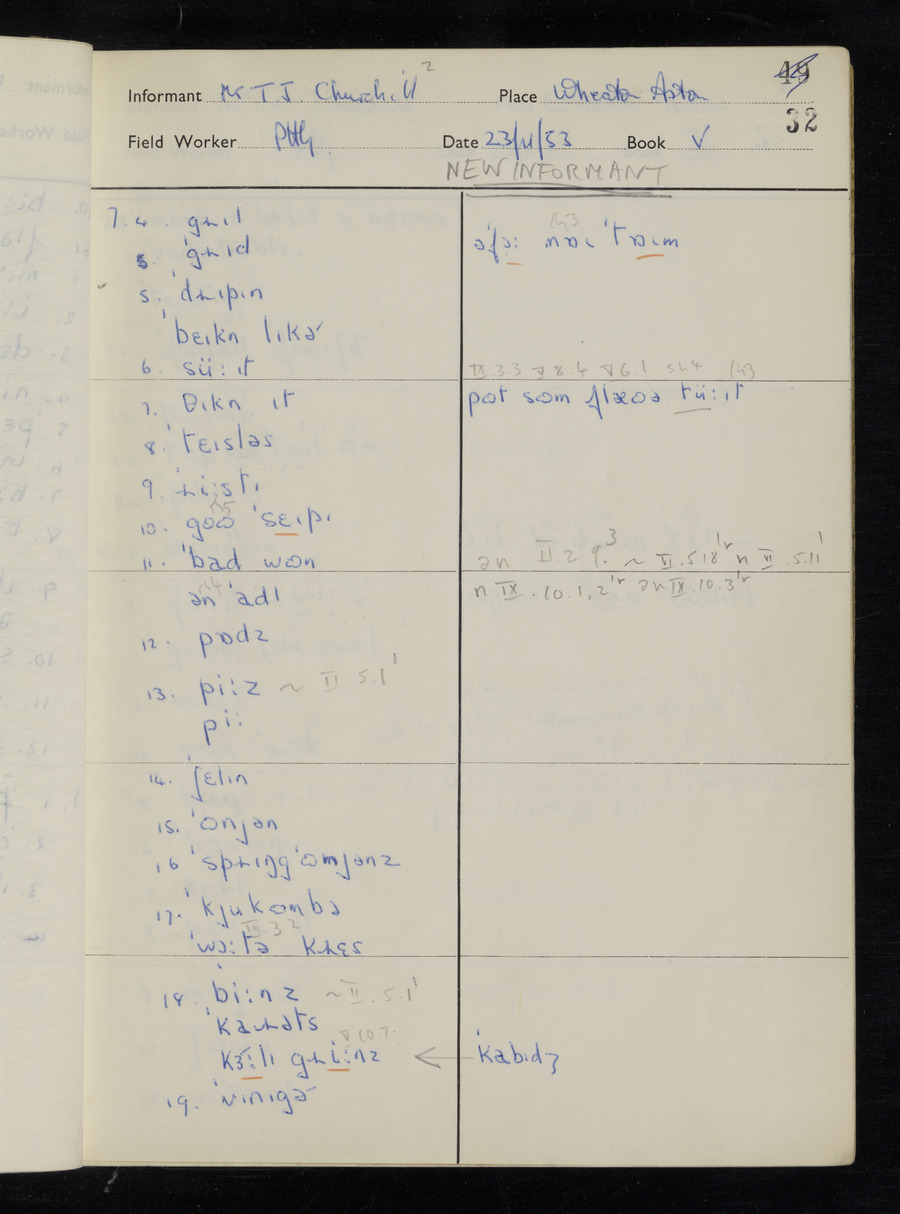 49
32
Informant Mr T.J. Churchill 2 Place Wheaton Aston
Field Worker PHG Date 23/11/53 Book V
NEW INFORMANT
7. 4. gɹɪl
5. ˈgɹɪd
5. ˈdɹɪpɪn
ˈbɛɪkn lɪkɚ
6. süːɪt
7. θɪkn ɪt
8. ˈtɛɪsləs
9. ɹiːstɪ
10. goʊ ˈsɛɪpɪ
11. ˈbad wɒn
ən ˈadl
12. pɒdz
13. piːz ~ II.5.1
piː
14. ʃɛlɪn
15. ˈɒnjən
16 ˈspɹɪŋg ˈɒnjənz
17. ˈkjukɒmbə
IX 3 2
ˈwɔːtə kɹɛs
18. ˈbiːnz ~ II.5.1
ˈkaɹəts
V 10 7.
kɜːlɪ gɹiːnz ←
19. ˈvɪnɪgɚ
əˈfɔː mɒɪ ˈtɒɪm
IX.3.3 V 8.4 V 6.1
pot som flæʊə tüːɪt
ən II 2 9. 3 ~ VI.5.18 n VI.5.11
n IX.10.1,2 ən IX.10.3
ˈkabɪdʒ